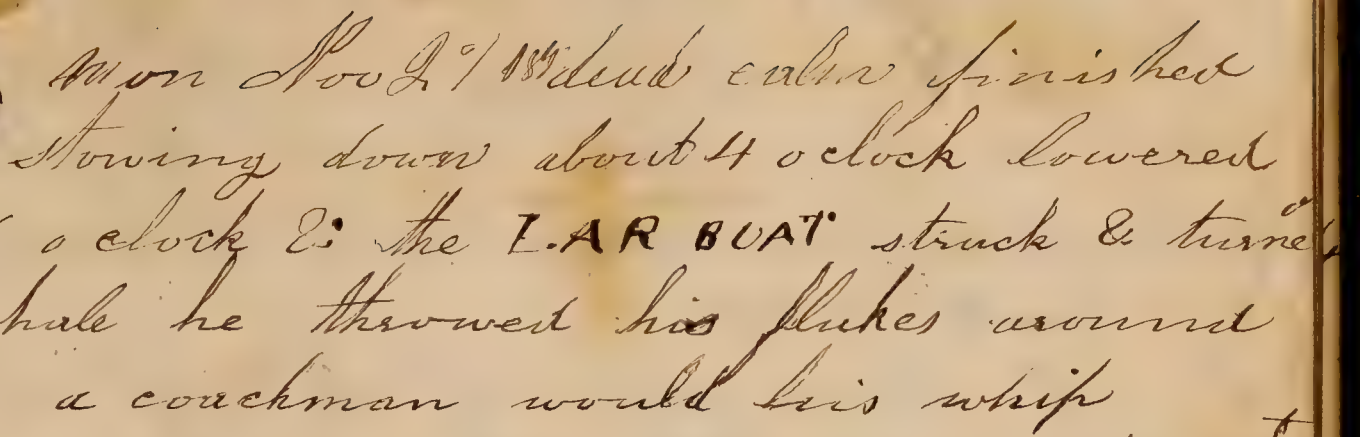 Mon Nov 2 dead calm finished
stowing down about 4 o clock lowered
o clock & the LAR BOAT struck & turned
hale he throwed his flukes around
a coachman would his whip